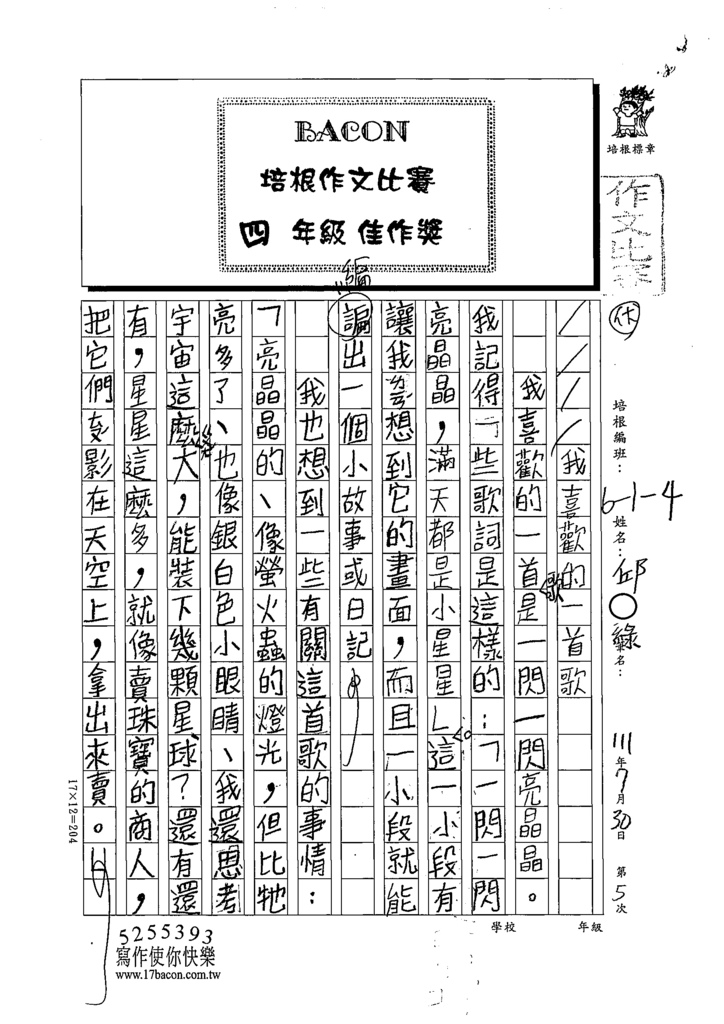 BACON
培根作文比賽
四 年級 佳作獎
培根標章
作文比賽
培根編班：6-1-4
姓名：邱○綠
111年7月30日 第5次
學校 年級
////我喜歡的一首歌
我喜歡的一首歌是一閃一閃亮晶晶。
我記得一些歌詞是這樣的：「一閃一閃
亮晶晶，滿天都是小星星」。這一小段有
讓我幻想到它的畫面，而且一小段就能
編出一個小故事或日記
我也想到一些有關這首歌的事情：
「亮晶晶的、像螢火蟲的燈光，但比牠
亮多了、也像銀白色小眼睛、我還思考
宇宙這麼大，能裝下幾顆星球？還有還
有，星星這麼多，就像賣珠寶的商人，
把它們變影在天空上，拿出來賣。
17×12=204
5255393
寫作使你快樂
www.17bacon.com.tw